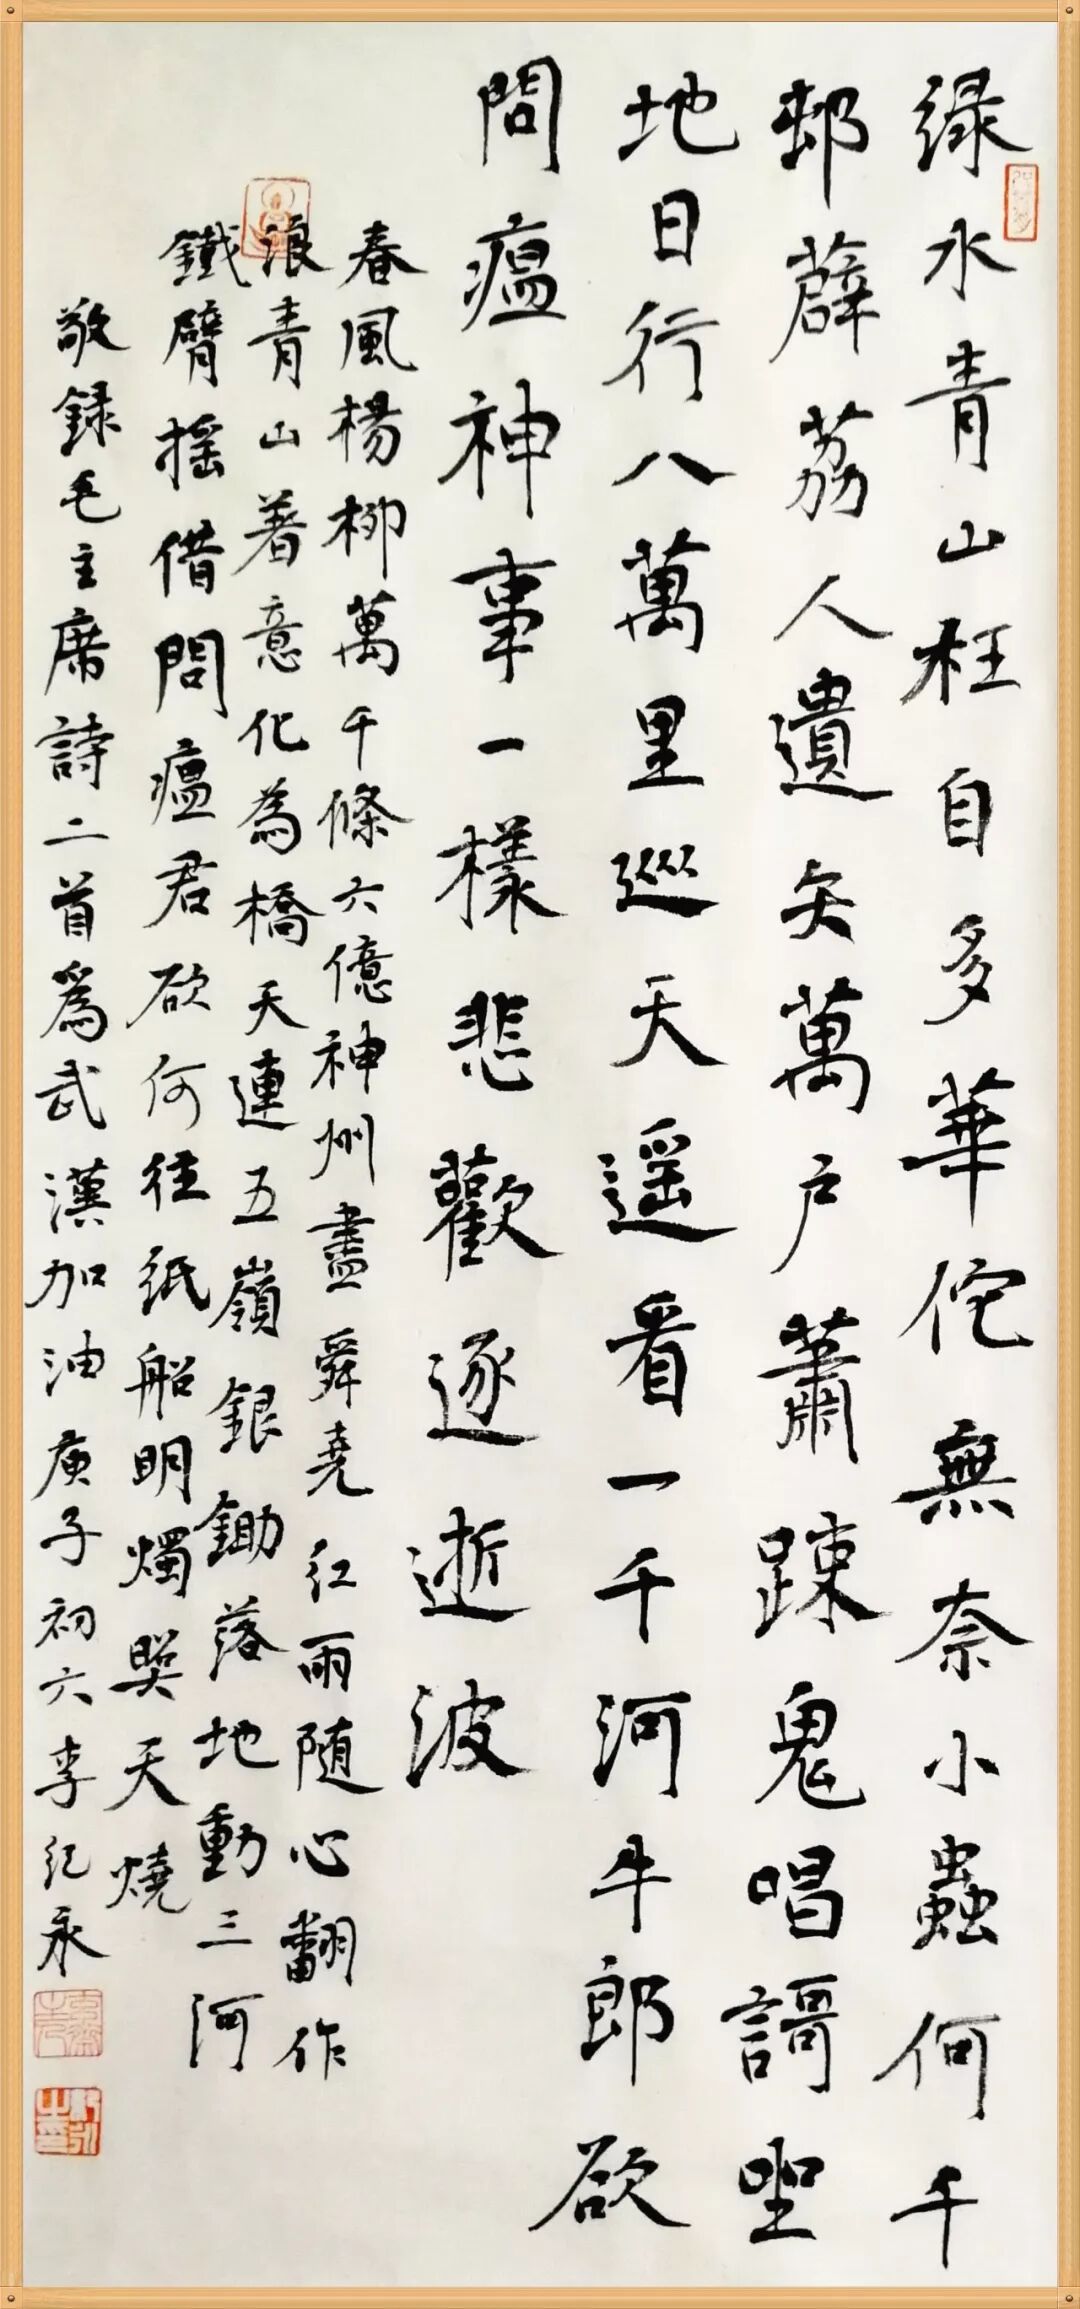 绿水青山枉自多華佗無奈小蟲何千
邨薜荔人遺矢萬户蕭踈鬼唱謌聖
地日行八萬里巡天遥看一千河牛郎欲
問瘟神事一樣悲歡逐逝波
春風楊柳萬千條六億神州盡舜堯红雨随心翻作
浪青山着意化為橋天連五嶺銀鋤落地動三河
鐵臂摇借問瘟君欲何往纸船明燭照天燒
敬録毛主席詩二首爲武漢加油庚子初六李纪永